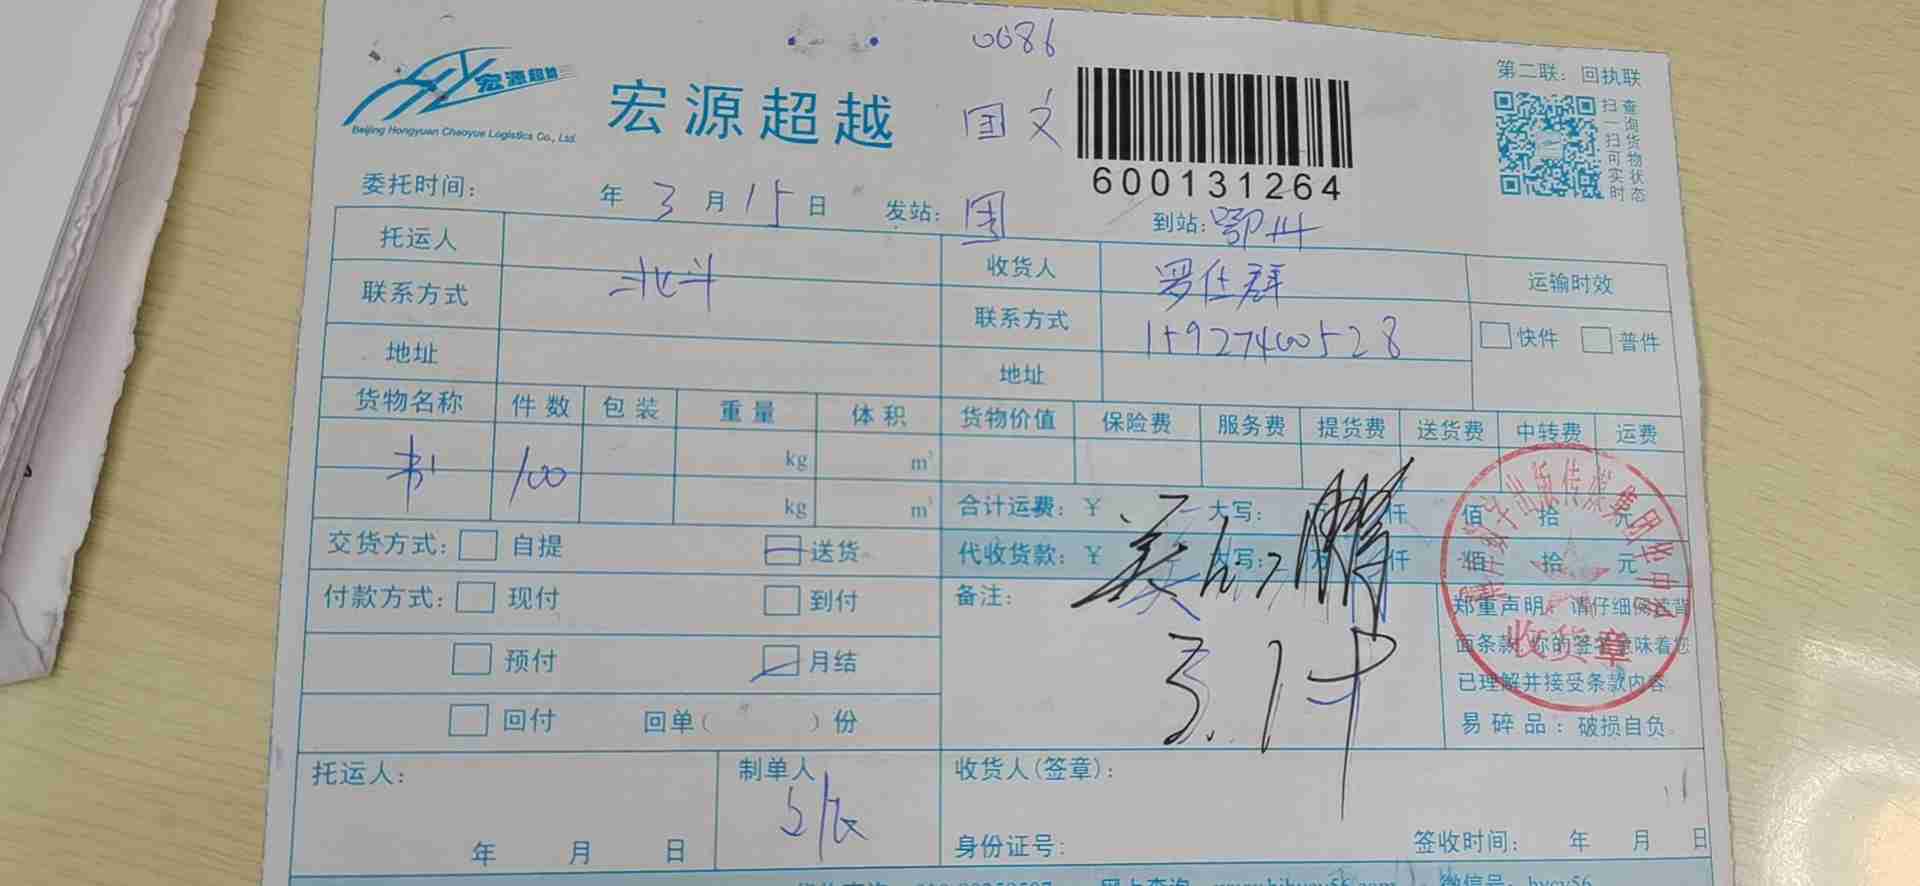 0086
第二联：回执联
宏源超越
Beijing Hongyuan Chaoyue Logistics Co., Ltd.
宏源超越
国文
600131264
扫一扫可实时
查询货物状态
委托时间： 年 3 月 15 日 发站： 国 到站：鄂州
托运人 收货人 罗仕群 运输时效
联系方式 北斗 联系方式 15927400528 快件 普件
地址 地址
货物名称 件数 包装 重量 体积 货物价值 保险费 服务费 提货费 送货费 中转费 运费
书 100 kg m³
kg m³
合计运费：￥ 大写： 仟 佰 拾 元
交货方式： 自提 送货 代收货款：￥ 大写： 万 仟 佰 拾 元
付款方式： 现付 到付 备注：
郑重声明：请仔细阅读背
面条款，你的签名意味着您
已理解并接受条款内容
易碎品：破损自负
预付 月结
回付 回单（ ）份
收货章
托运人： 制单人 收货人（签章）：
年 月 日 身份证号： 签收时间： 年 月 日